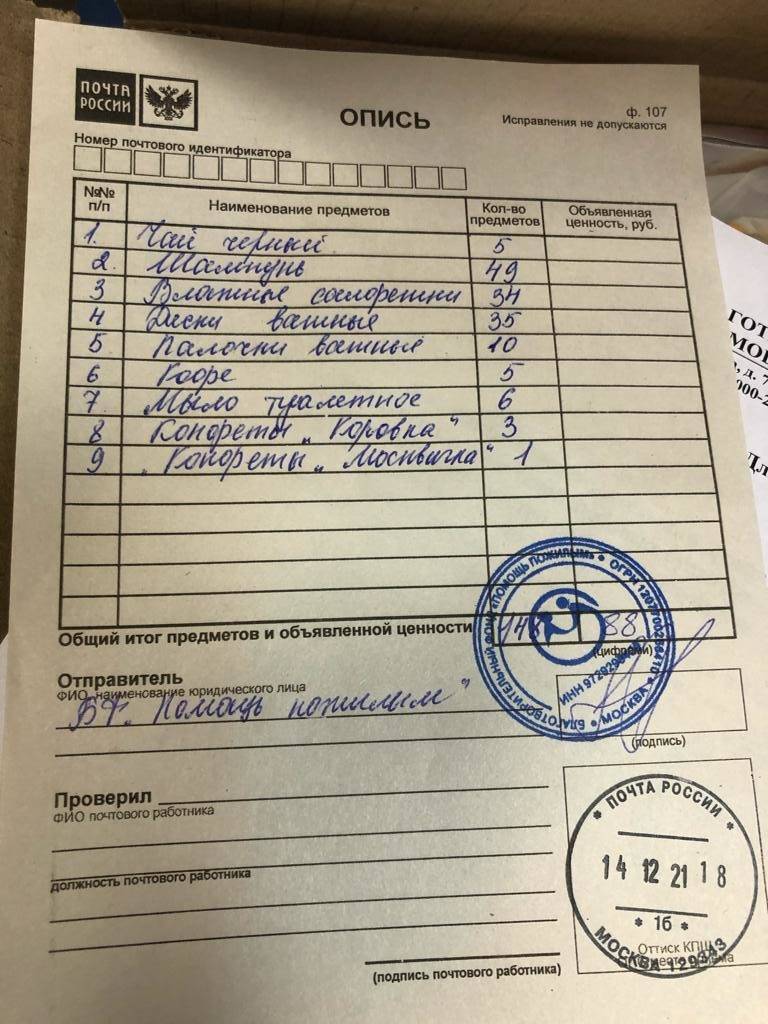 ПОЧТА
РОССИИ
ОПИСЬ
ф. 107
Исправления не допускаются
Номер почтового идентификатора
№№ п/п Наименование предметов Кол-во предметов Объявленная ценность, руб.
1. Чай черный 5
2. Шампунь 49
3 Влажные салфетки 34
4 Диски ватные 35
5 Палочки ватные 10
6 Кофе 5
7 Мыло туалетное 6
8 Конфеты „Коровка" 3
9 „Конфеты „Москвичка" 1
Общий итог предметов и объявленной ценности 148 88
(цифрами)
БЛАГОТВОРИТЕЛЬНЫЙ ФОНД «ПОМОЩЬ ПОЖИЛЫМ» • ОГРН
• МОСКВА •
ИНН
Отправитель
ФИО, наименование юридического лица
БФ „Помощь пожилым"
(подпись)
Проверил
ФИО почтового работника
должность почтового работника
(подпись почтового работника)
* ПОЧТА РОССИИ *
14 12 21 18
* 1б *
МОСКВА
Оттиск КПШ
ГОТ
МО
, д. 7